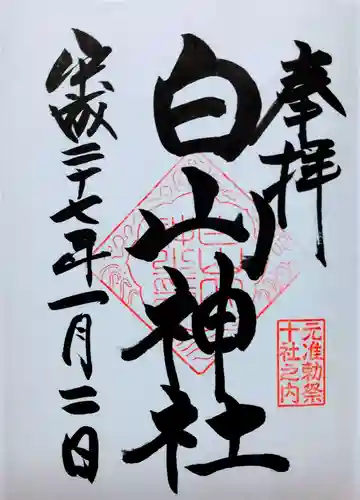 奉拝
白山神社
元准勅祭
十社之内
平成二十七年一月二日